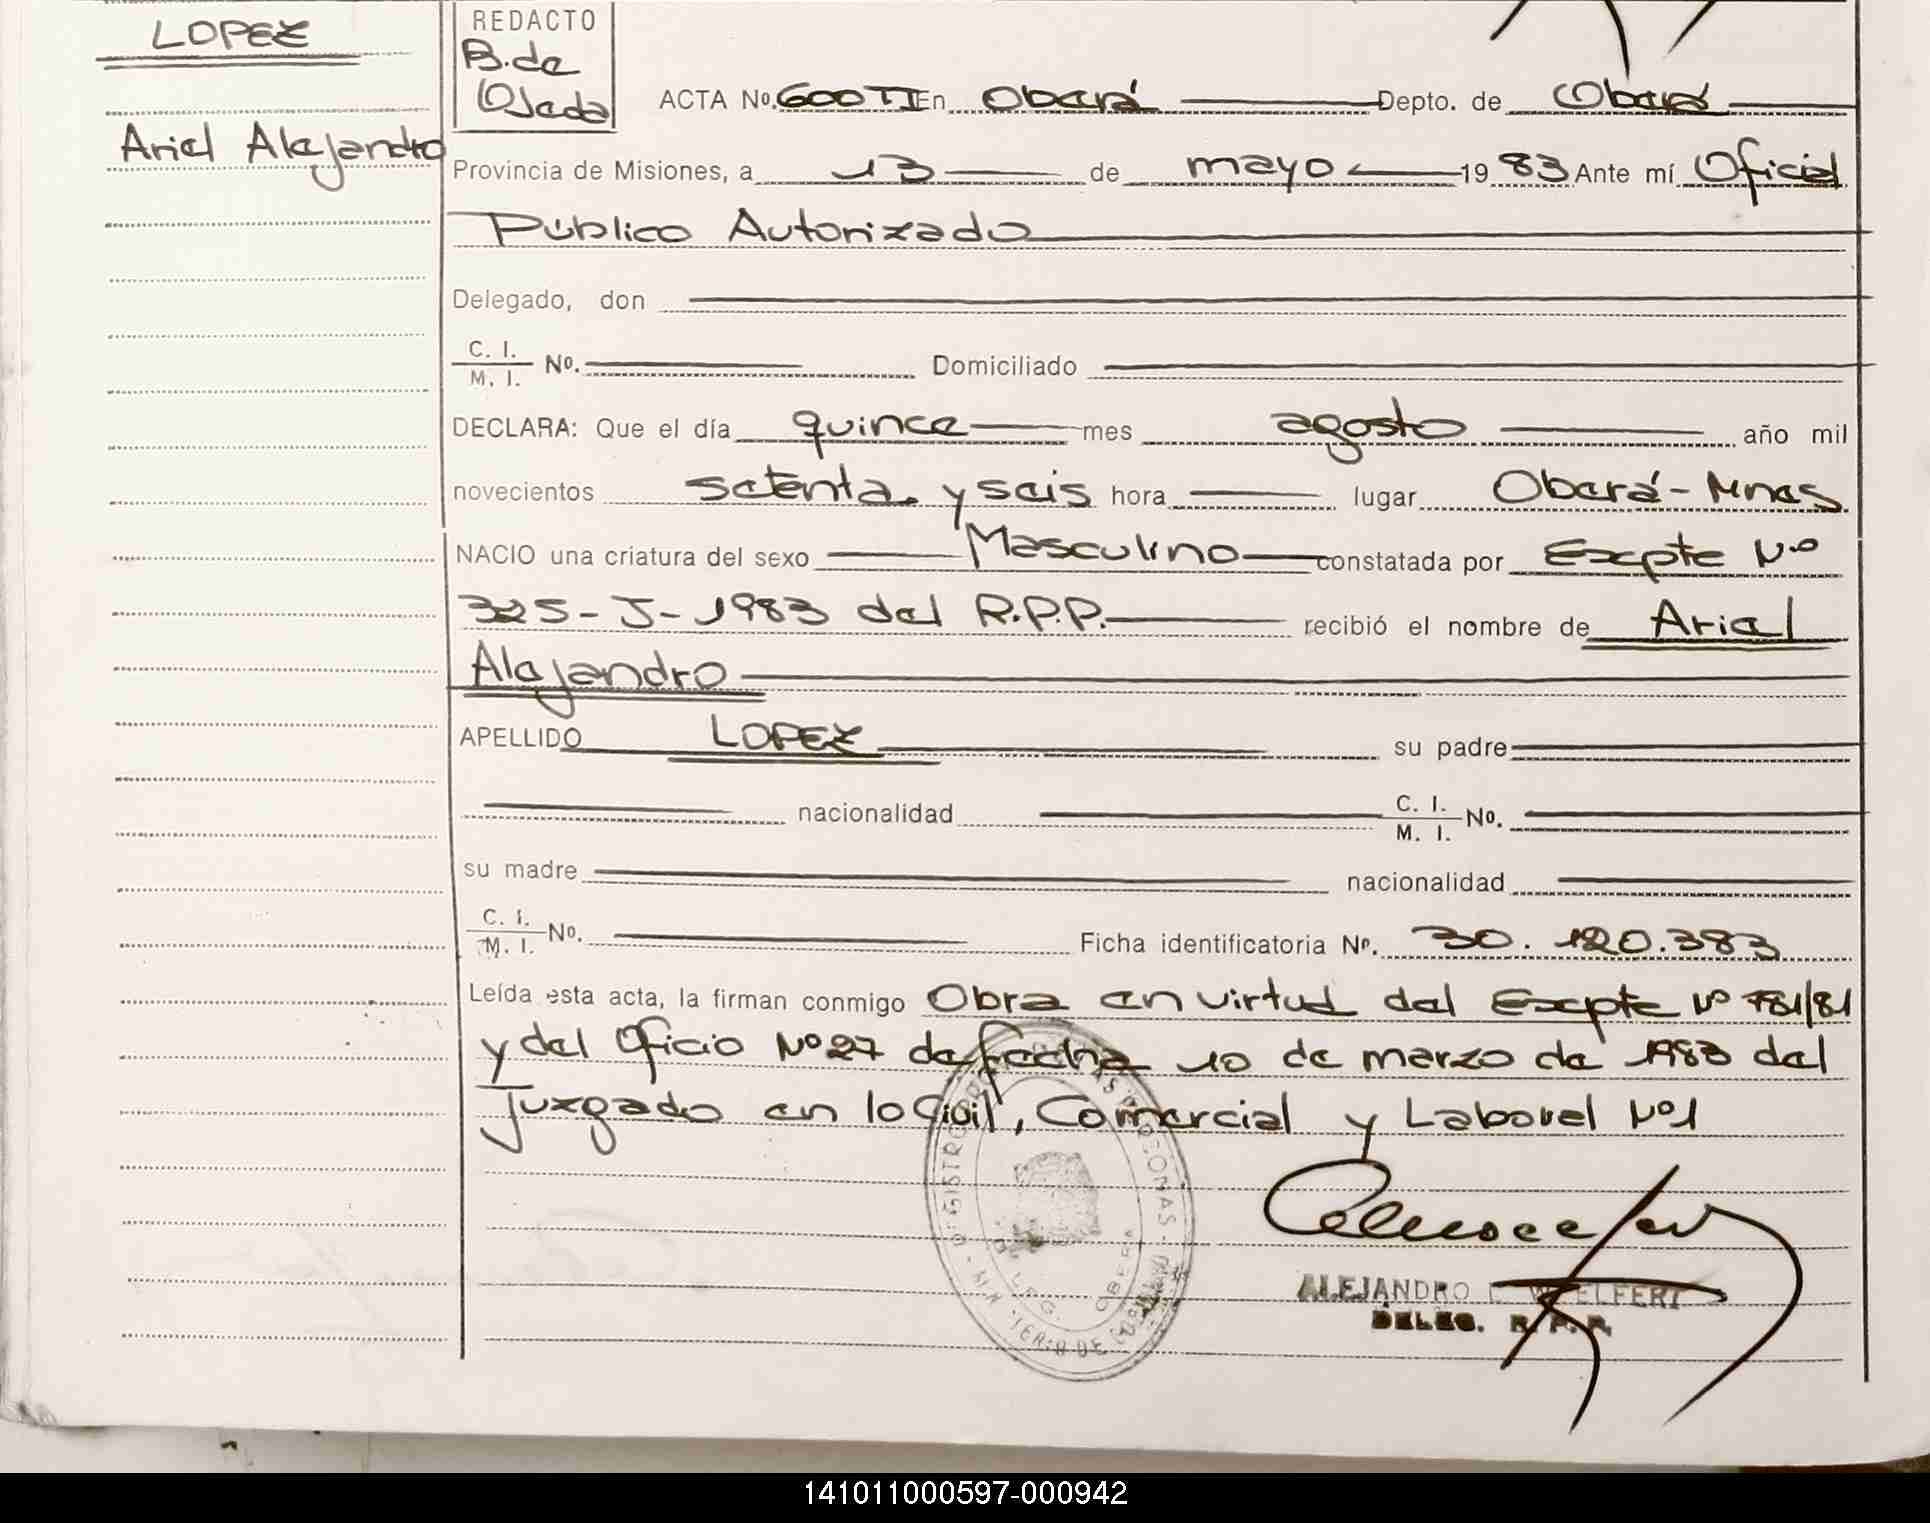 LOPEZ
Ariel Alejandro
REDACTO
B. de
Ojeda
ACTA No. 600 TI En Oberá Depto. de Oberá
Provincia de Misiones, a 13 de mayo 19 83 Ante mí Oficial
Público Autorizado
Delegado, don
C. I.
M. I. No. Domiciliado
DECLARA: Que el día quince mes agosto año mil
novecientos setenta y seis hora lugar Oberá - Mnes
NACIO una criatura del sexo Masculino constatada por Excpte Nº
325 - J - 1983 del R.P.P. recibió el nombre de Ariel
Alejandro
APELLIDO LOPEZ su padre
nacionalidad C. I.
M. I. No.
su madre nacionalidad
C. I.
M. I. No. Ficha identificatoria Nº. 30.120.383
Leída esta acta, la firman conmigo Obra en virtud del Excpte Nº 781/81
y del Oficio Nº 27 de fecha 10 de marzo de 1983 del
Juzgado en lo Civil, Comercial y Laboral Nº 1
ALEJANDRO
DELEG. R. P. P.
OBERA
141011000597-000942